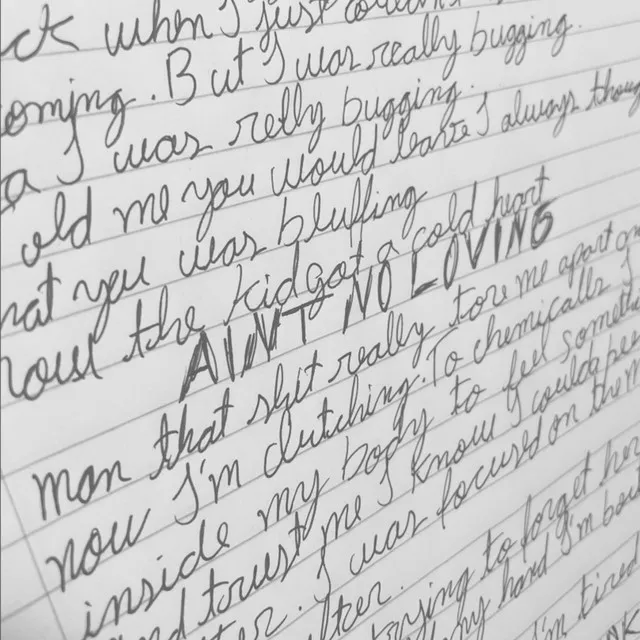 ck when I just
oming. But I was really bugging.
a I was relly bugging.
old me you would leave I always thoug
hat you was bluffing
now the kid got a cold hart
AINT NO LOVING
man that shit really tore me apart an
now I'm clutching. To chemicalls I
inside my body to feel someth
and trust me I know I coulda bee
ter. I was focused on them
lter.
trying to forget her
my hand I'm bout
I'm tired